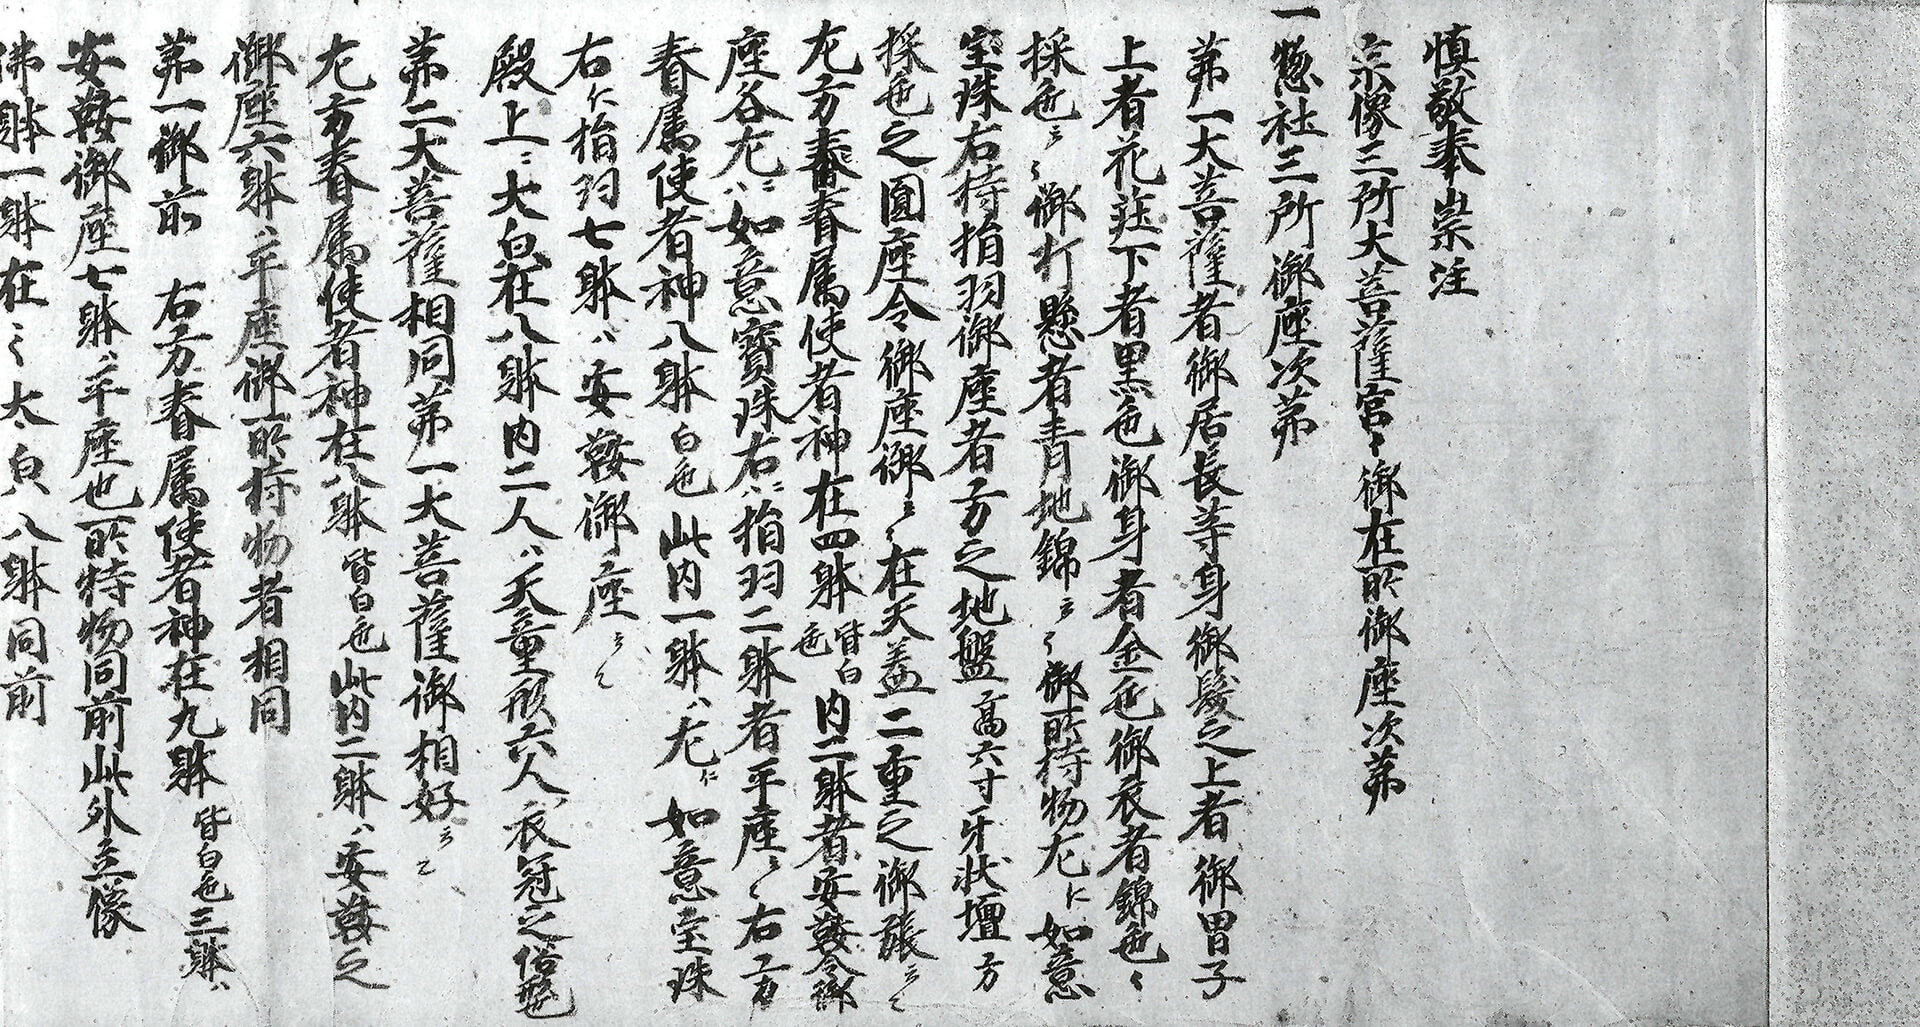 慎敬奉崇注
宗像三所大菩薩宮々御在所御座次苐
一惣社三所御座次苐
苐一大菩薩者御居長等身御髪之上者御冑子
上者花莊下者黒色御身者金色御衣者錦色々
採色云々御打懸者青地錦云々御所持物左ニ如意
宝珠右持指羽御座者方之地盤高六寸牙状壇方
採色之圓座令御座御云々在天盖二重之御張云々
左方眷属使者神在四躰皆白色内二躰者安鞍令御
座各左ニハ如意寶珠右ハ指羽二躰者平座云々右方
眷属使者神八躰白色此内一躰ハ左ニ如意宝珠
右ニ指羽七躰ハ安鞍御座云々
殿上ニ大白在八躰内二人ハ天童形六人衣冠之俗躰
苐二大菩薩相同苐一大菩薩御相好云々
左方眷属使者神在八躰皆白色此内二躰ハ安鞍之
御座六躰ハ平座御所持物者相同
苐一御前 右方眷属使者神在九躰皆白色三躰ハ
安鞍御座七躰ハ平座也所持物同前此外立像
佛躰一躰在云々大白八躰同前